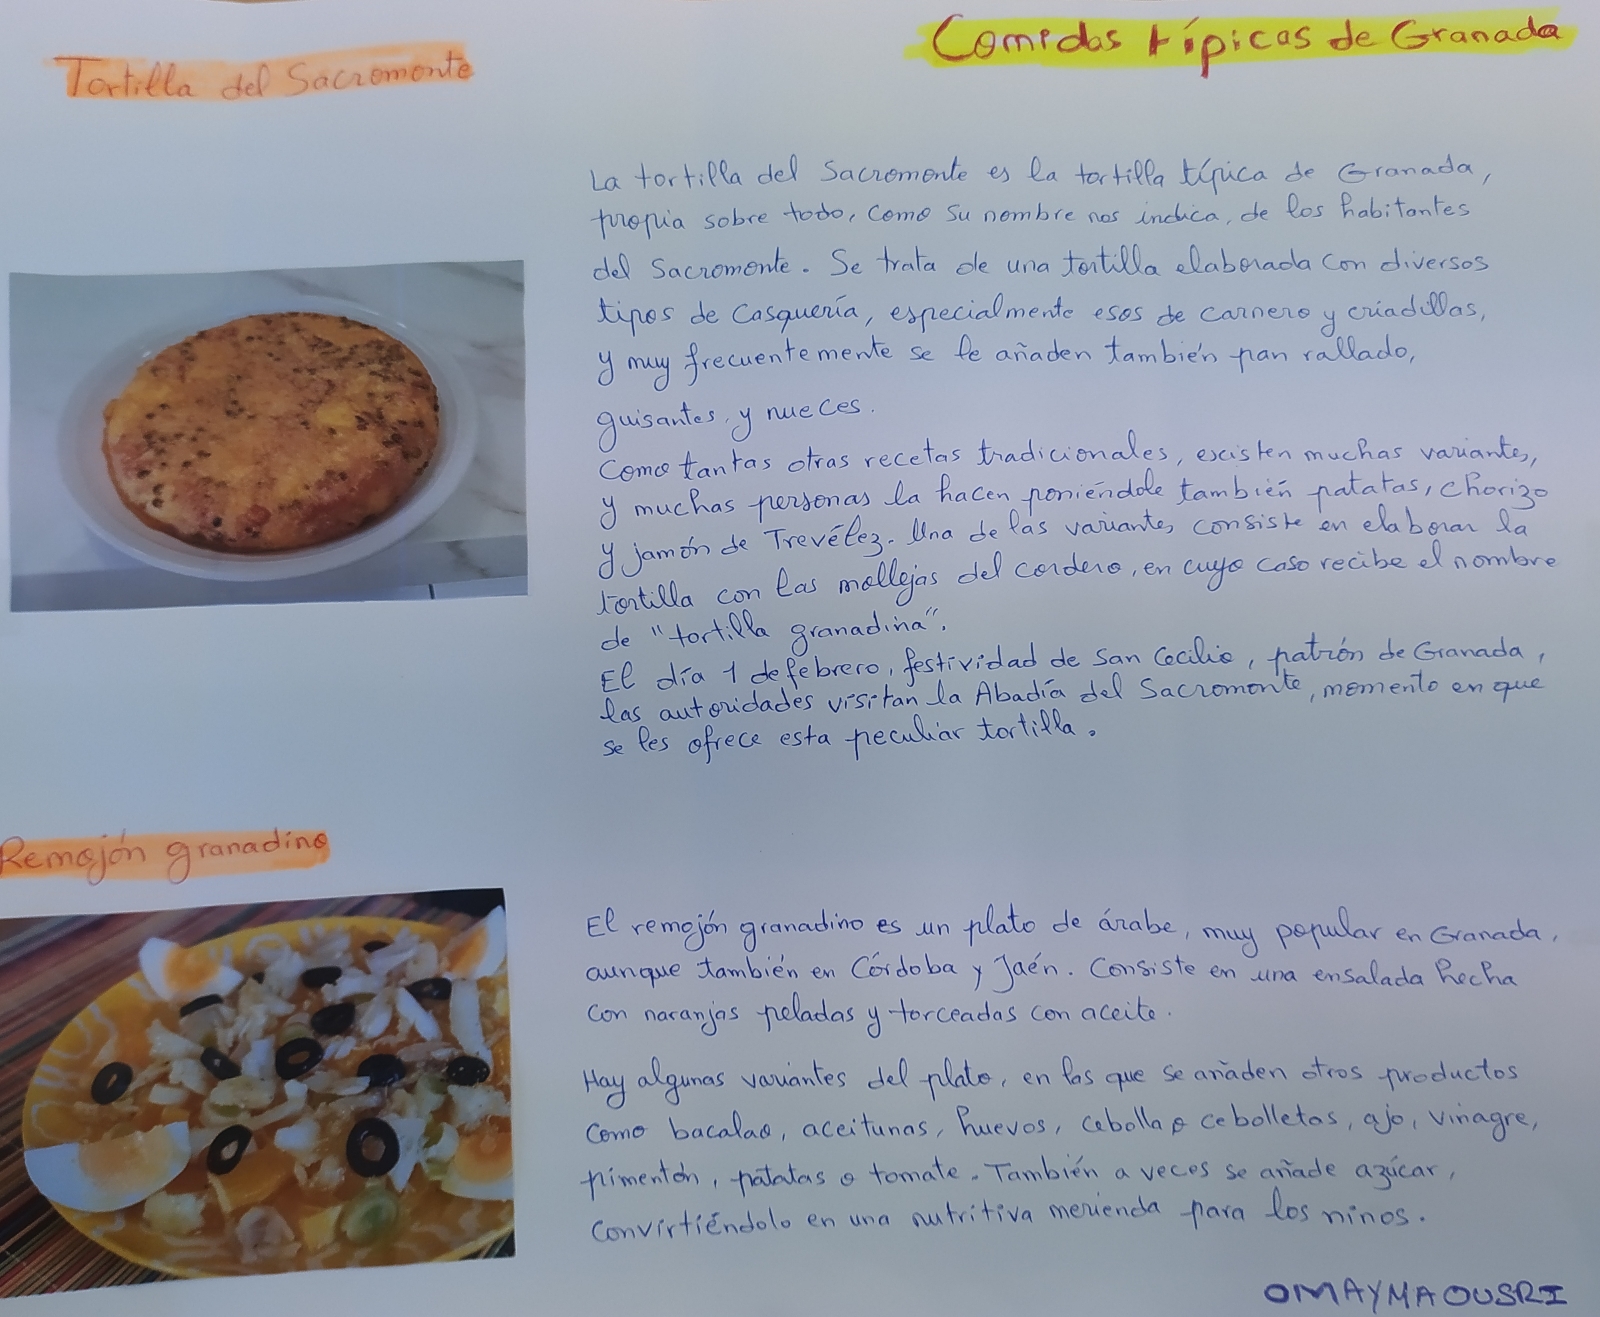 Comidas típicas de Granada
Tortilla del Sacromonte
La tortilla del Sacromonte es la tortilla típica de Granada,
propia sobre todo, como su nombre nos indica, de los habitantes
del Sacromonte. Se trata de una tortilla elaborada con diversos
tipos de casquería, especialmente esos de carnero y criadillas,
y muy frecuentemente se le añaden también pan rallado,
guisantes, y nueces.
Como tantas otras recetas tradicionales, existen muchas variantes,
y muchas personas la hacen poniéndole también patatas, chorizo
y jamón de Trevélez. Una de las variantes consiste en elaborar la
tortilla con las mollejas del cordero, en cuyo caso recibe el nombre
de "tortilla granadina".
El día 1 de febrero, festividad de San Cecilio, patrón de Granada,
las autoridades visitan la Abadía del Sacromonte, momento en que
se les ofrece esta peculiar tortilla.
Remojón granadino
El remojón granadino es un plato de árabe, muy popular en Granada,
aunque también en Córdoba y Jaén. Consiste en una ensalada hecha
con naranjas peladas y torceadas con aceite.
Hay algunas variantes del plato, en las que se añaden otros productos
como bacalao, aceitunas, huevos, cebolla o cebolletas, ajo, vinagre,
pimentón, patatas o tomate. También a veces se añade azúcar,
convirtiéndolo en una nutritiva merienda para los ninos.
OMAYMA OUSRI